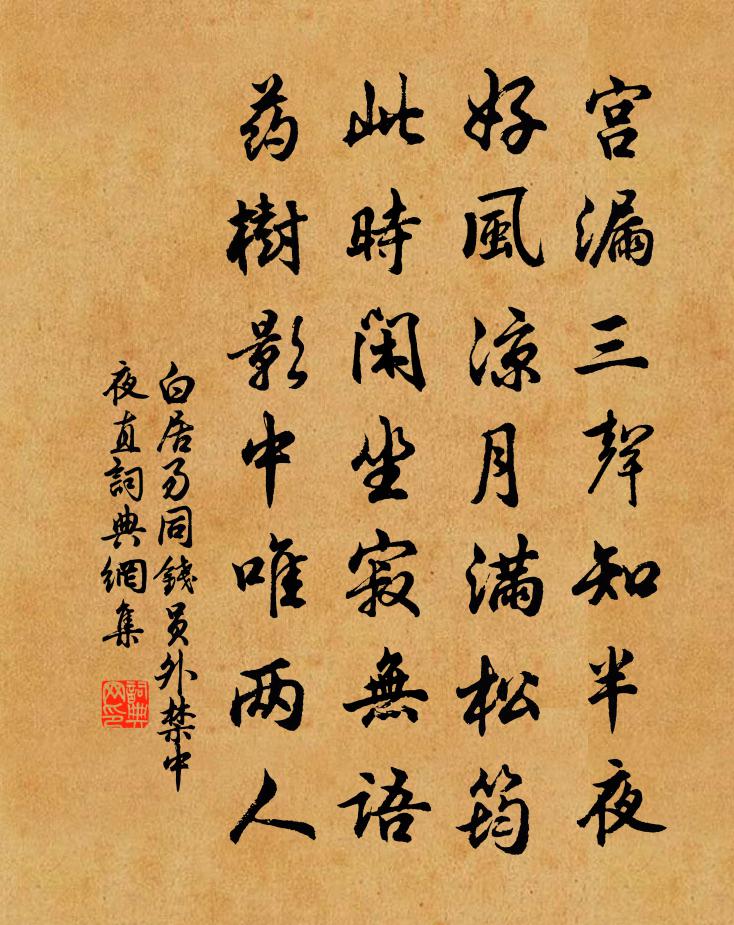 宫漏三聲知半夜
好風凉月滿松筠
此時閑坐寂無語
药樹影中唯两人
白居易同錢員外禁中
夜直詞典網集
詞典网印